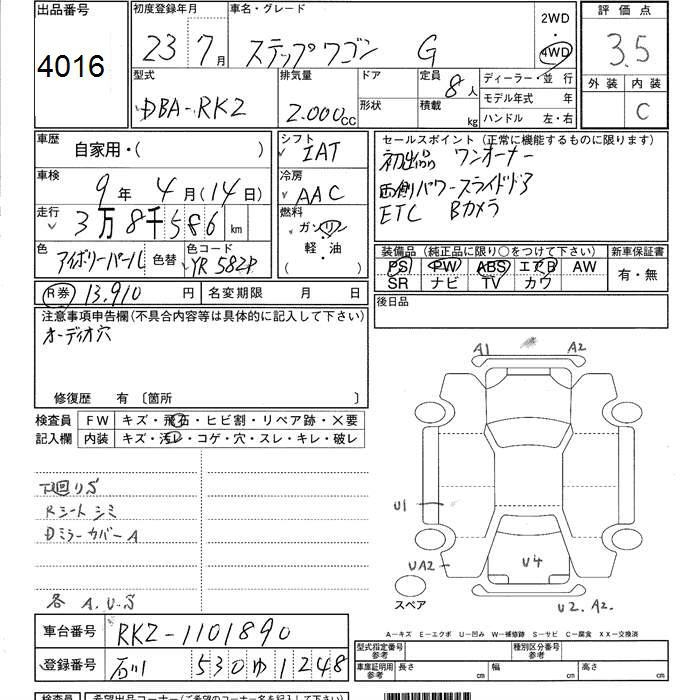 出品番号
4016
初度登録年月
23 年 7 月
車名・グレード
ステップワゴン G
2WD
4WD
評価点
3.5
型式
DBA-RK2
排気量
2.000 cc
ドア
形状
定員
8人
積載
kg
ディーラー・並行
モデル年式 年
ハンドル 左・右
外装
内装
C
車歴
自家用・( )
シフト
IAT
車検
9年 4月(14日)
冷房
AAC
走行
3万8千586 km
燃料
ガソリン
軽・油
( )
色
アイボリーパール
色替
色コード
YR582P
セールスポイント (正常に機能するものに限ります)
初出品 ワンオーナー
両側パワースライドドア
ETC Bカメラ
装備品 (純正品に限り○をつけて下さい)
PS PW ABS エアB AW
SR ナビ TV カワ
新車保証書
有・無
R券 13,910 円
名変期限 月 日
後日品
注意事項申告欄(不具合内容等は具体的に記入して下さい)
オーディオ穴
修復歴 有 〔箇所 〕
検査員
記入欄
FW キズ・飛石・ヒビ割・リペア跡・X要
内装 キズ・汚レ・コゲ・穴・スレ・キレ・破レ
下廻りS
Rシートシミ
DミラーカバーA
各 A.U.S
A1
A2
U1
UA2
U4
U2.A2.
スペア
A－キズ E－エクボ U－凹み W－補修跡 S－サビ C－腐食 XX－交換済
車台番号
RK2-1101890
登録番号
石川 530 ゆ 1248
型式指定番号
参考
種別区分番号
参考
車庫証明用
参考
長さ cm
幅 cm
高さ cm
検査員
希望出品コーナー(ご希望のコーナー名を記入して下さい)